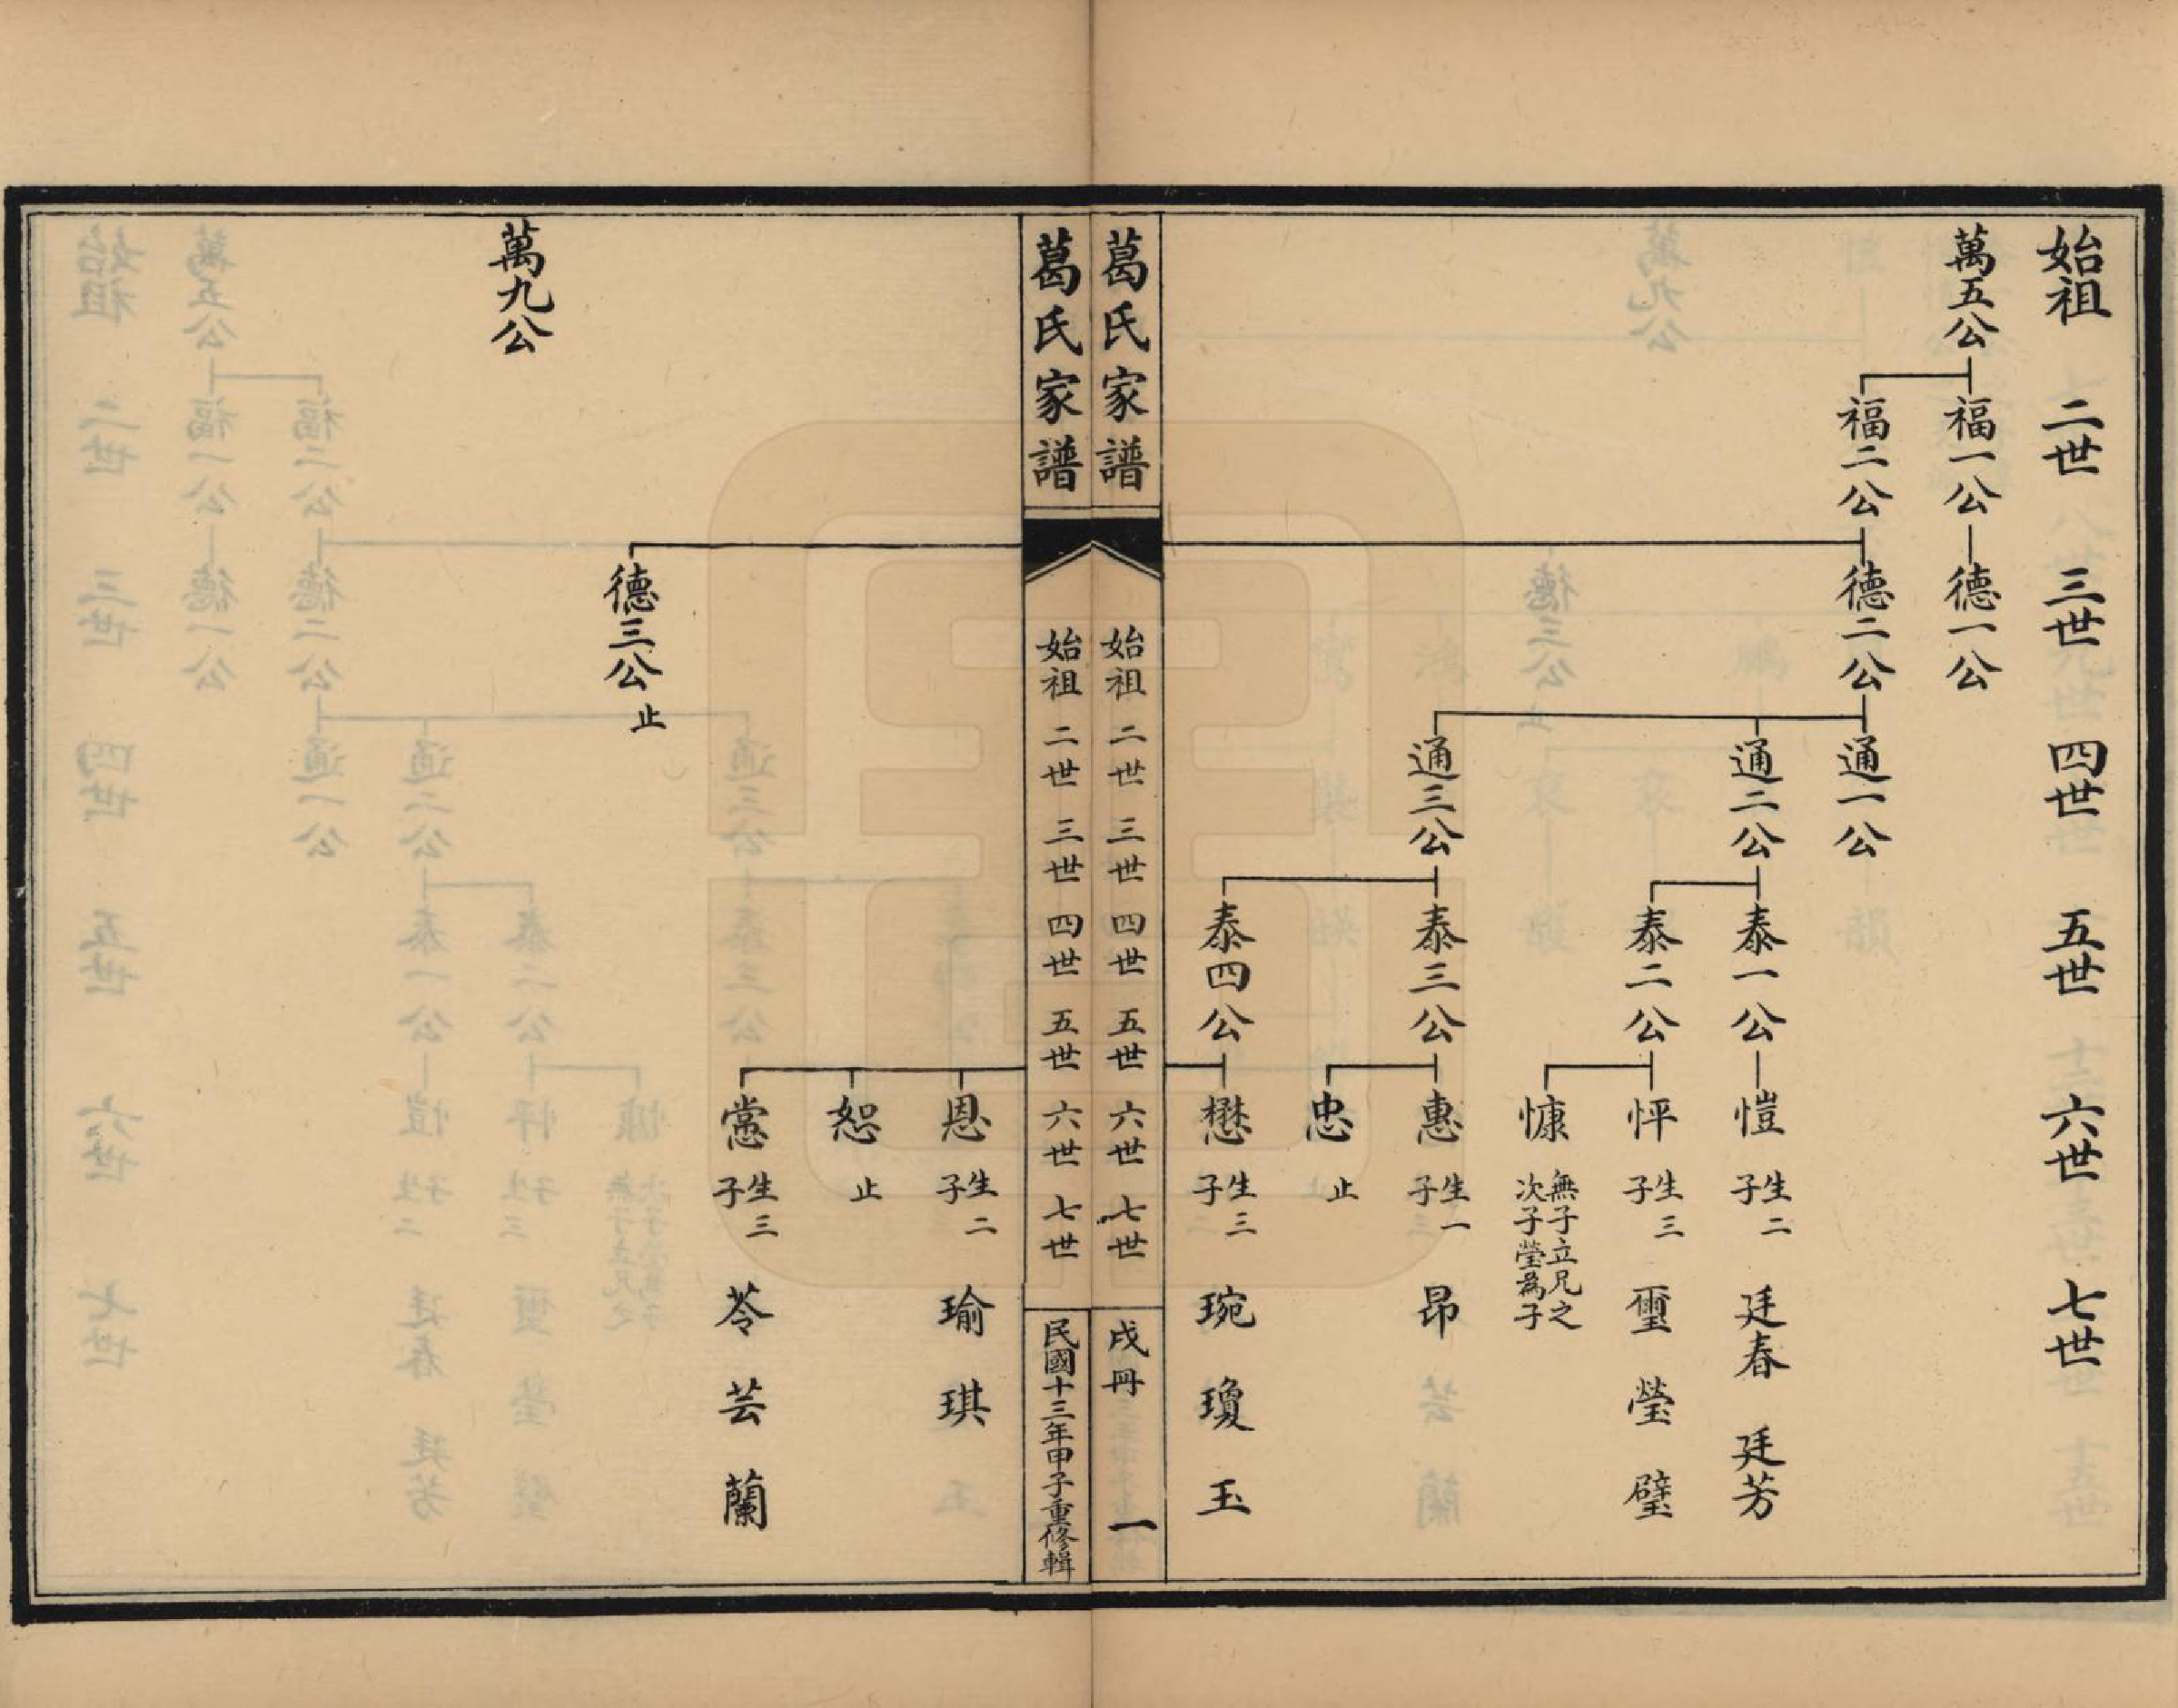 始祖 二世 三世 四世 五世 六世 七世
萬五公 福一公 德一公
福二公 德二公 通一公
通二公 泰一公 愷 生二子 廷春 廷芳
泰二公 怦 生三子 璽 瑩 璧
慷 無子立兄之次子瑩為子
通三公 泰三公 惠 生一子 昂
忠 止
泰四公 懋 生三子 琬 瓊 玉
葛氏家譜 始祖 二世 三世 四世 五世 六世 七世 戌冊 一
葛氏家譜 始祖 二世 三世 四世 五世 六世 七世 民國十三年甲子重修輯
恩 生二子 瑜 琪
恕 止
戃 生三子 芩 芸 蘭
德三公 止
萬九公